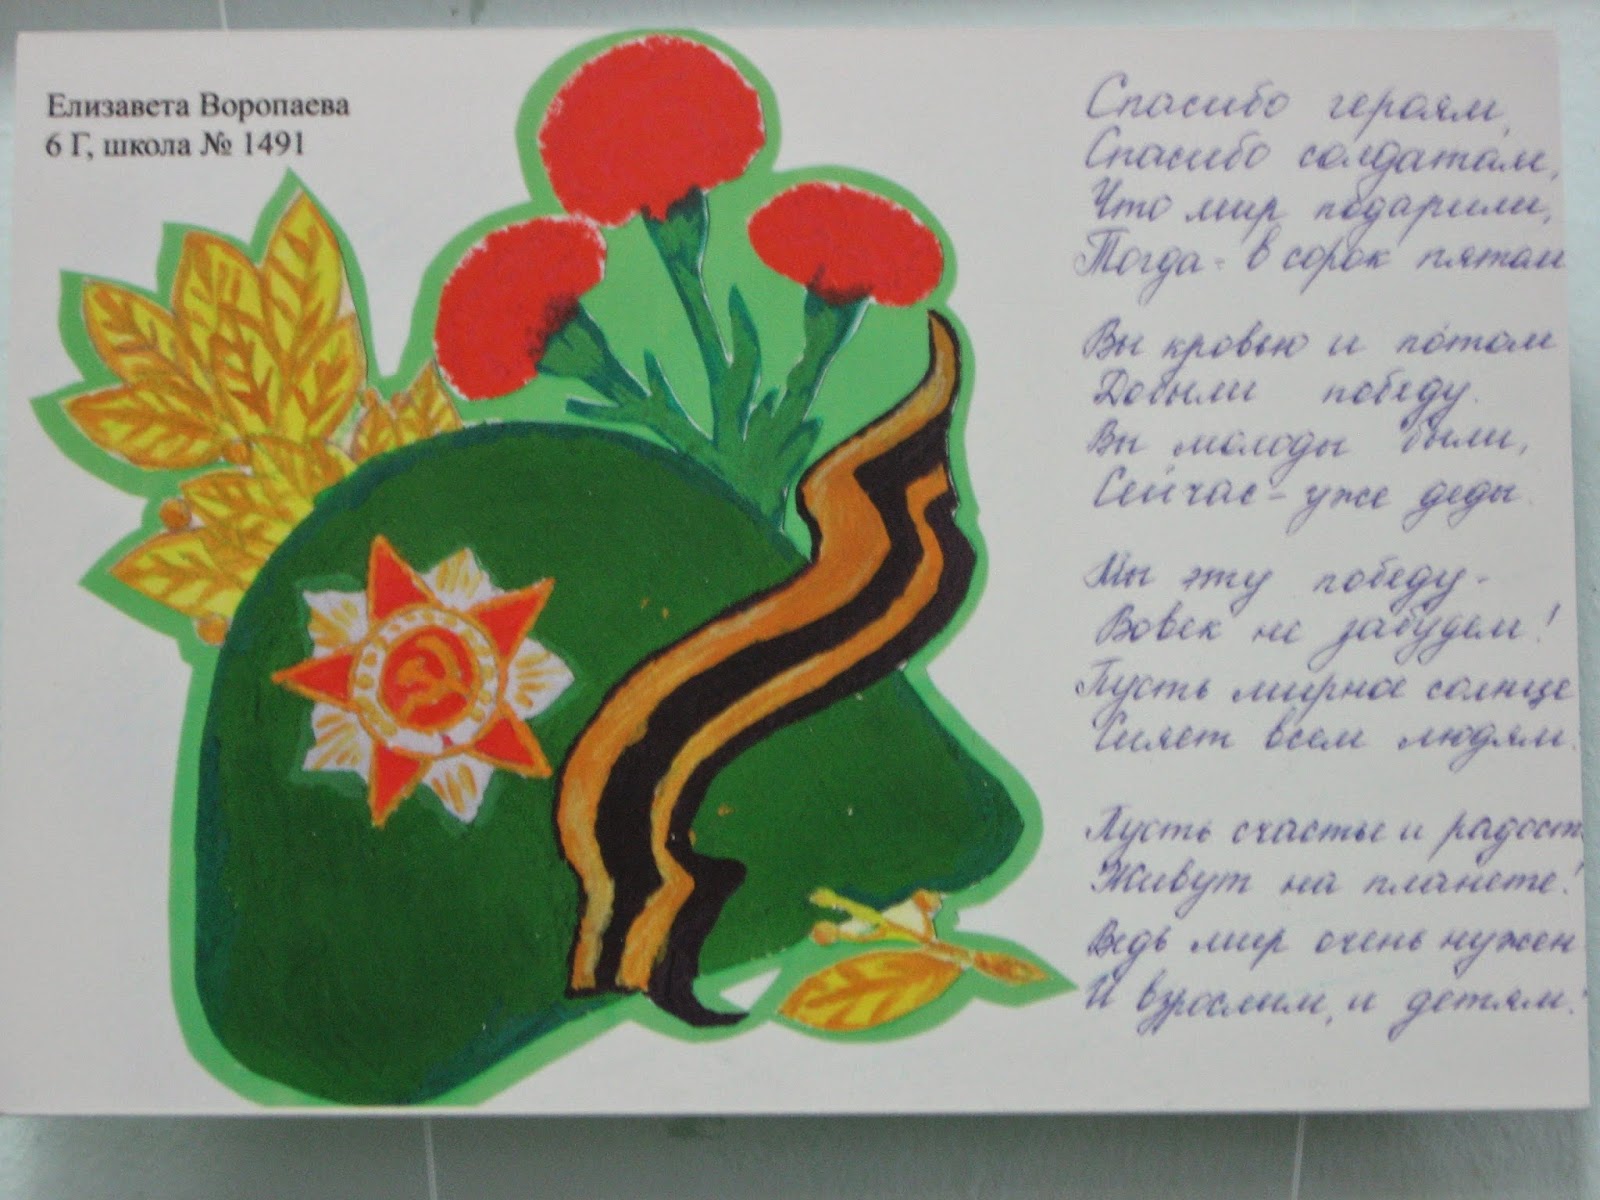 Елизавета Воропаева
6 Г, школа № 1491
Спасибо героям,
Спасибо солдатам,
Что мир подарили,
Тогда - в сорок пятом
Вы кровью и по́том
Добыли победу.
Вы молоды были,
Сейчас - уже деды.
Мы эту победу -
Вовек не забудем!
Пусть мирное солнце
Сияет всем людям.
Пусть счастье и радост
Живут на планете!
Ведь мир очень нужен
И взрослым, и детям.